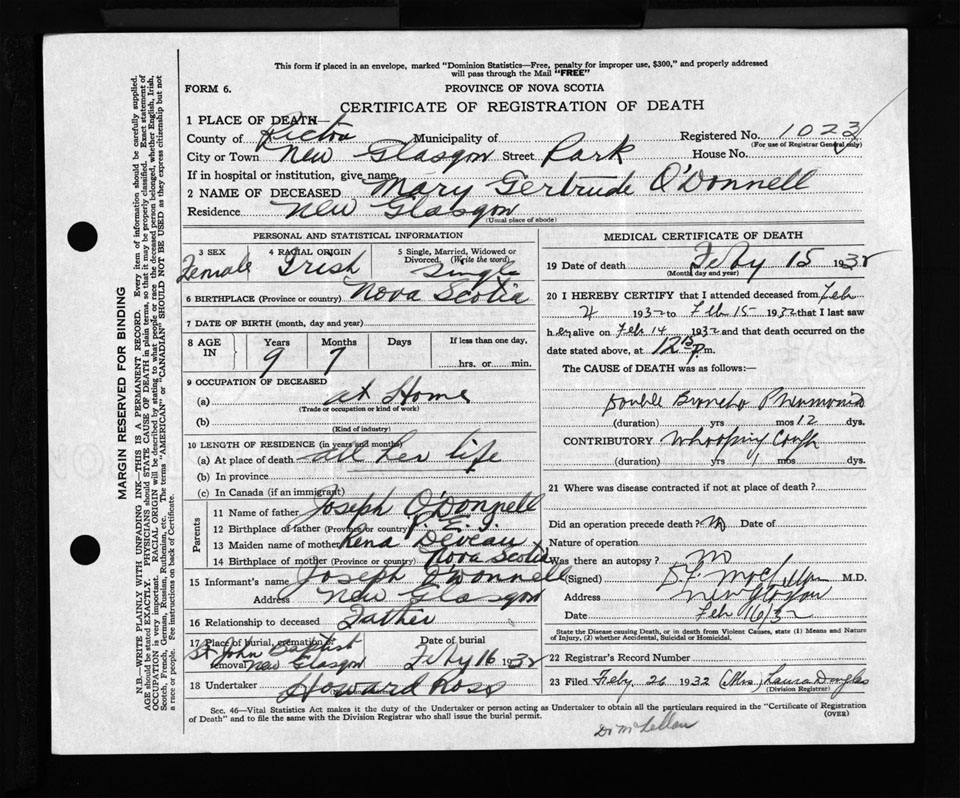 This form if placed in an envelope, marked "Dominion Statistics—Free, penalty for improper use, $300," and properly addressed
will pass through the Mail "FREE"
FORM 6.
PROVINCE OF NOVA SCOTIA
CERTIFICATE OF REGISTRATION OF DEATH
1 PLACE OF DEATH—
County of Pictou Municipality of Registered No. 1023
(For use of Registrar General only)
City or Town New Glasgow Street Park House No.
If in hospital or institution, give name
2 NAME OF DECEASED Mary Gertrude O'Donnell
Residence New Glasgow
(Usual place of abode)
PERSONAL AND STATISTICAL INFORMATION
3 SEX Female
4 RACIAL ORIGIN Irish
5 Single, Married, Widowed or Divorced, (Write the word) Single
6 BIRTHPLACE (Province or country) Nova Scotia
7 DATE OF BIRTH (month, day and year)
8 AGE IN Years 9 Months 7 Days If less than one day, hrs. or min.
9 OCCUPATION OF DECEASED
(a) at Home
(Trade or occupation or kind of work)
(b)
(Kind of industry)
10 LENGTH OF RESIDENCE (in years and months)
(a) At place of death all her life
(b) In province
(c) In Canada (if an immigrant)
Parents
11 Name of father Joseph O'Donnell
12 Birthplace of father (Province or country) P. E. I.
13 Maiden name of mother Rena Deveau
14 Birthplace of mother (Province or country) Nova Scotia
15 Informant's name Joseph O'Donnell
Address New Glasgow
16 Relationship to deceased Father
17 Place of burial, cremation or removal St John Baptist New Glasgow
Date of burial Feby 16 1932
18 Undertaker Howard Ross
MEDICAL CERTIFICATE OF DEATH
19 Date of death Feby 15 1932
(Month, day and year)
20 I HEREBY CERTIFY that I attended deceased from Feb
4 1932 to Feb 15 1932 that I last saw
her alive on Feb 14 1932 and that death occurred on the
date stated above, at 12 p.m.
The CAUSE of DEATH was as follows:—
Double Broncho Pneumonia
(duration) yrs mos 12 dys.
CONTRIBUTORY Whooping Cough
(duration) yrs 1 mos dys.
21 Where was disease contracted if not at place of death?
Did an operation precede death? No Date of
Nature of operation
Was there an autopsy? No
(Signed) M.D.
Address New Glasgow
Date Feb 16/32
State the Disease causing Death, or in death from Violent Causes, state (1) Means and Nature
of Injury, (2) whether Accidental, Suicidal or Homicidal.
22 Registrar's Record Number
23 Filed Feby 26 1932 (Mrs) Laura Douglas
(Division Registrar)
Sec. 46—Vital Statistics Act makes it the duty of the Undertaker or person acting as Undertaker to obtain all the particulars required in the "Certificate of Registration
of Death" and to file the same with the Division Registrar who shall issue the burial permit.
(OVER)
Dr McLellan
MARGIN RESERVED FOR BINDING
N.B.—WRITE PLAINLY WITH UNFADING INK—THIS IS A PERMANENT RECORD. Every item of information should be carefully supplied.
AGE should be stated EXACTLY. PHYSICIANS should STATE CAUSE OF DEATH in plain terms, so that it may be properly classified. Exact statement of
OCCUPATION is very important. RACIAL ORIGIN will be described by stating to what people or race the deceased person belonged, whether English, Irish,
Scotch, French, German, Russian, Ruthenian, etc. The terms "AMERICAN" or "CANADIAN" SHOULD NOT BE USED as they express citizenship but not
a race or people. See instructions on back of Certificate.